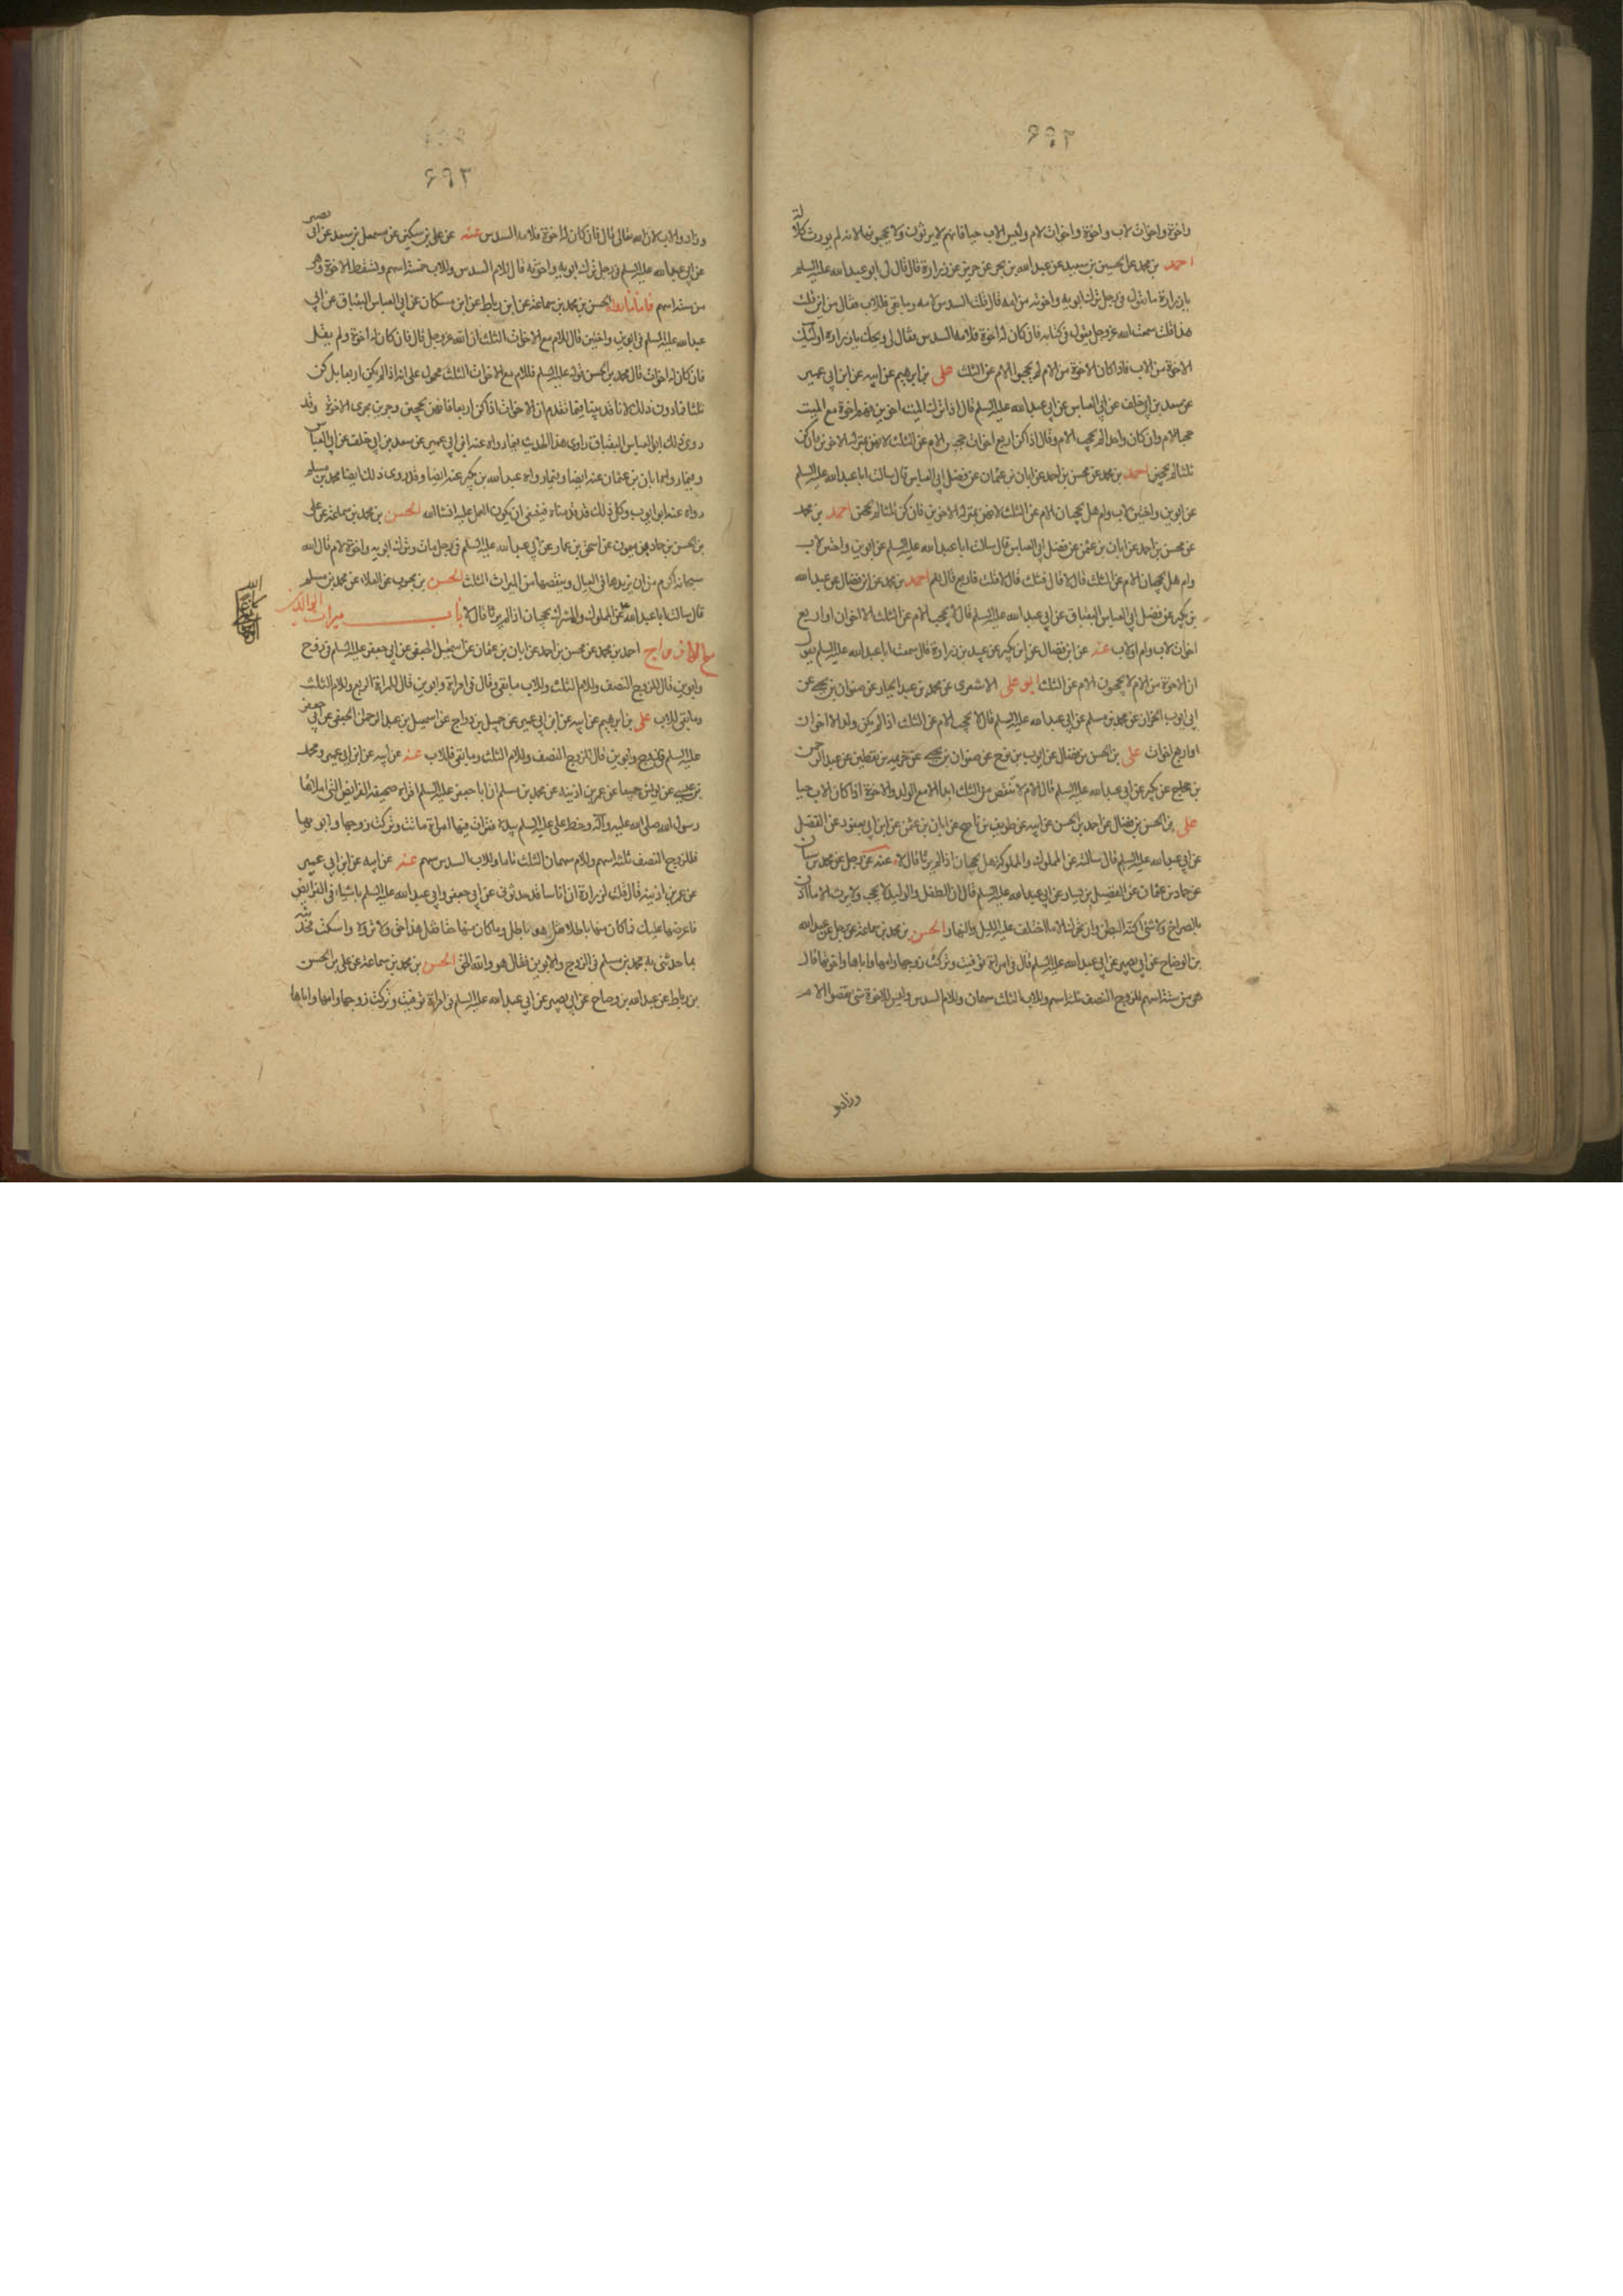 واخوة واخوات لاب واخوة واخوات لام وليس الاب حيا فانهم لا يرثون ولا يحجبونها لانه لم يورث كلالة
احمد بن محمد عن الحسين بن سعيد عن عبد الله بن بحر عن حريز عن زرارة قال قال لي ابو عبد الله عليه السلم
يا زرارة ما تقول في رجل ترك ابويه واخوته من امه قال قلت السدس لامه وما بقي فللاب فقال من اين قلت
هذا قلت سمعت الله عز وجل يقول في كتابه فان كان له اخوة فلامه السدس فقال لي ويحك يا زرارة اولئك
الاخوة من الاب فاذا كان الاخوة من الام لم يحجبوا الام عن الثلث علي بن ابرهيم عن ابيه عن ابن ابي عمير
عن سعد بن ابي خلف عن ابي العباس عن ابي عبد الله عليه السلم قال اذا ترك الميت اخوين فهم اخوة مع الميت
حجبا الام وان كان واحدا لم يحجب الام وقال اذا كن اربع اخوات حجبن الام عن الثلث لانهن بمنزلة الاخوين وان كن
ثلثا لم يحجبن احمد بن محمد عن محسن بن احمد عن ابان بن عثمان عن فضل ابي العباس قال سالت ابا عبد الله عليه السلم
عن ابوين واختين لاب وام هل يحجبان الام عن الثلث لانهن بمنزلة الاخوين فان كن ثلثا لم يحجبن احمد بن محمد
عن محسن بن احمد عن ابان بن عثمن عن فضل ابي العباس قال سالت ابا عبد الله عليه السلم عن ابوين واختين لاب
وام هل يحجبان الام عن الثلث قال لا قال قلت فثلث قال لا قلت فاربع قال نعم احمد بن محمد عن ابن فضال عن عبد الله
بن بكير عن فضل ابي العباس البقباق عن ابي عبد الله عليه السلم قال لا يحجب الام عن الثلث الا اخوان او اربع
اخوات لاب وام او لاب عنه عن ابن فضال عن ابن بكير عن عبيد بن زرارة قال سمعت ابا عبد الله عليه السلم يقول
ان الاخوة من الام لا يحجبون الام عن الثلث ابو علي الاشعري عن محمد بن عبد الجبار عن صفوان بن يحيى عن
ابي ايوب الخزاز عن محمد بن مسلم عن ابي عبد الله عليه السلم قال لا يحجب الام عن الثلث اذا لم يكن ولد الا اخوان
او اربع اخوات علي بن الحسن بن فضال عن ايوب بن نوح عن صفوان بن يحيى عن خزيمة بن يقطين عن عبد الرحمن
بن حجاج عن بكير عن ابي عبد الله عليه السلم قال الام لا تنقص من الثلث ابدا الا مع الولد والاخوة اذا كان الاب حيا
علي بن الحسن بن فضال عن احمد بن الحسن عن ابيه عن ظريف بن ناصح عن ابان بن عثمن عن ابن ابي يعفور عن الفضل
عن ابي عبد الله عليه السلم قال سالته عن المملوك والمملوكة هل يحجبان اذا لم يرثا قال لا عنه عن رجل عن محمد بن سنان
عن حماد بن عثمان عن الفضيل بن يسار عن ابي عبد الله عليه السلم قال ان الطفل والوليد لا يحجب ولا يرث الا ما اذن
بالصراخ ولا شئ اكنه البطن وان تحرك الا ما اختلف عليه الليل والنهار الحسن بن محمد بن سماعة عن رجل عن عبد الله
بن الوضاح عن ابي بصير عن ابي عبد الله عليه السلم قال في امراة توفيت وتركت زوجها وامها واباها واخوتها قال
هي من ستة اسهم للزوج النصف ثلثة اسهم وللاب الثلث سهمان وللام السدس وليس للاخوة شئ نقصوا الام
وزادو
وزادوا الاب لان الله تعالى قال فان كان له اخوة فلامه السدس عنه عن علي بن سكين عن مشمعل بن سعد عن ابي بصير
عن ابي عبد الله عليه السلم في رجل ترك ابويه واخوته قال للام السدس وللاب خمسة اسهم وتسقط الاخوة وهي
من ستة اسهم فاما ما رواه الحسن بن محمد بن سماعة عن ابن رباط عن ابن مسكان عن ابي العباس البقباق عن ابي
عبد الله عليه السلم في ابوين واختين قال للام مع الاخوات الثلث ان الله عز وجل قال فان كان له اخوة ولم يقل
فان كان له اخوات قال محمد بن الحسن قوله عليه السلم للام مع الاخوات الثلث محمول على انه اذا لم يكن اربعا بل كن
ثلثا فما دون ذلك لانا قد بينا فيما تقدم ان الاخوات اذا كن اربعا فانهن يحجبن وجرين مجرى الاخوة وقد
روى ذلك ابو العباس البقباق راوي هذا الحديث فيما رواه عنه ابن ابي عمير عن سعد بن ابي خلف عن ابي العباس
وفيما رواه ابان بن عثمان عنه ايضا وفيما رواه عبد الله بن بكير عنه ايضا وقد روى ذلك ايضا محمد بن مسلم
رواه عنه ابو ايوب وكل ذلك قد قدمناه فينبغي ان يكون العمل عليه انشا الله الحسن بن محمد بن سماعة عن علي
بن الحسن بن حماد بن ميمون عن اسحق بن عمار عن ابي عبد الله عليه السلم في رجل مات وترك ابويه واخوة لام قال الله
سبحانه اكرم من ان يزيدها في العيال وينقصها من الميراث الثلث الحسن بن محبوب عن العلاء عن محمد بن مسلم
قال سالت ابا عبد الله ع عن المملوك والمشرك يحجبان اذا لم يرثا قال لا باب ميراث الوالدين
مع الازواج احمد بن محمد عن محسن بن احمد عن ابان بن عثمان عن اسمعيل الجعفي عن ابي جعفر عليه السلم في زوج
وابوين قال للزوج النصف وللام الثلث وللاب ما بقي وقال في امراة وابوين قال للمراة الربع وللام الثلث
وما بقي للاب علي بن ابرهيم عن ابيه عن ابن ابي عمير عن جميل بن دراج عن اسمعيل بن عبد الرحمن الجعفي عن ابي جعفر
عليه السلم في زوج وابوين قال للزوج النصف وللام الثلث وما بقي فللاب عنه عن ابيه عن ابن ابي عمير ومحمد
بن عيسى عن يونس جميعا عن عمر بن اذينة عن محمد بن مسلم ان ابا جعفر عليه السلم اقراه صحيفة الفرايض التي املاها
رسول الله صلى الله عليه وآله وخط علي عليه السلم بيده فقرات فيها امراة ماتت وتركت زوجها وابويها
فللزوج النصف ثلثة اسهم وللام سهمان الثلث تاما وللاب السدس سهم عنه عن ابيه عن ابن ابي عمير
عن عمر بن اذينة قال قلت لزرارة ان اناسا قد حدثوني عن ابي جعفر وابي عبد الله عليه السلم باشياء في الفرايض
فاعرضها عليك فما كان منها باطلا فقل هو باطل وما كان منها حقا فقل هذا حق ولا تروه واسكت فحدثته
بما حدثني به محمد بن مسلم في الزوج والابوين فقال هو والله الحق الحسن بن محمد بن سماعة عن علي بن الحسن
بن رباط عن عبد الله بن وضاح عن ابي بصير عن ابي عبد الله عليه السلم في امراة توفيت وتركت زوجها وامها واباها